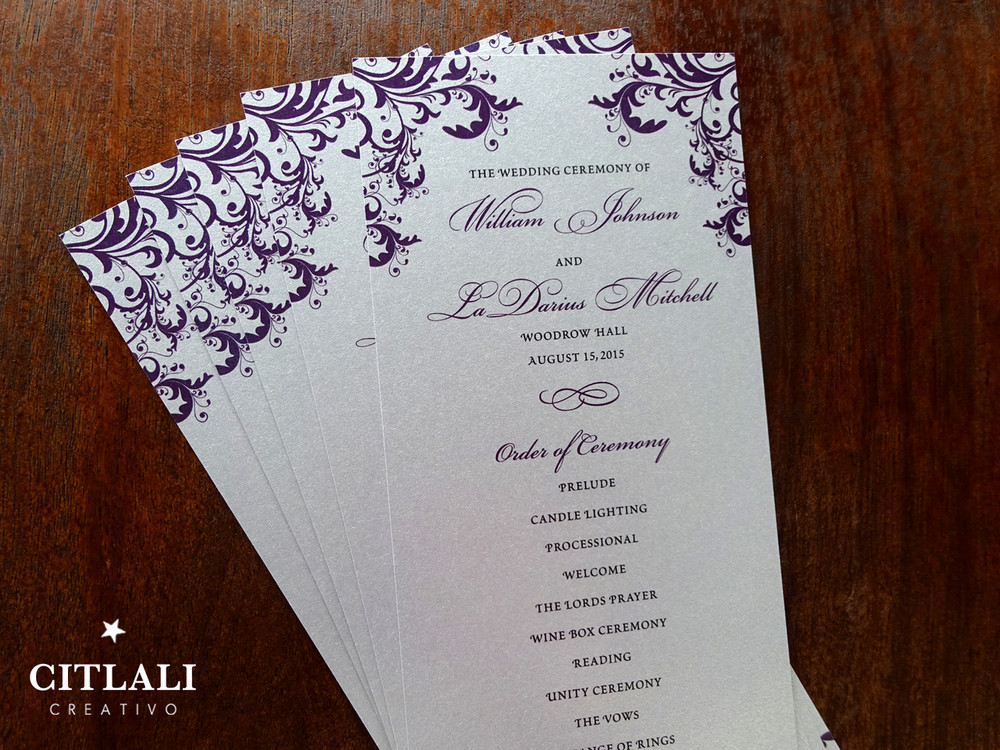 THE WEDDING CEREMONY OF
William Johnson
AND
LaDarius Mitchell
WOODROW HALL
AUGUST 15, 2015
Order of Ceremony
PRELUDE
CANDLE LIGHTING
PROCESSIONAL
WELCOME
THE LORDS PRAYER
WINE BOX CEREMONY
READING
UNITY CEREMONY
THE VOWS
OF RINGS
CITLALI
CREATIVO